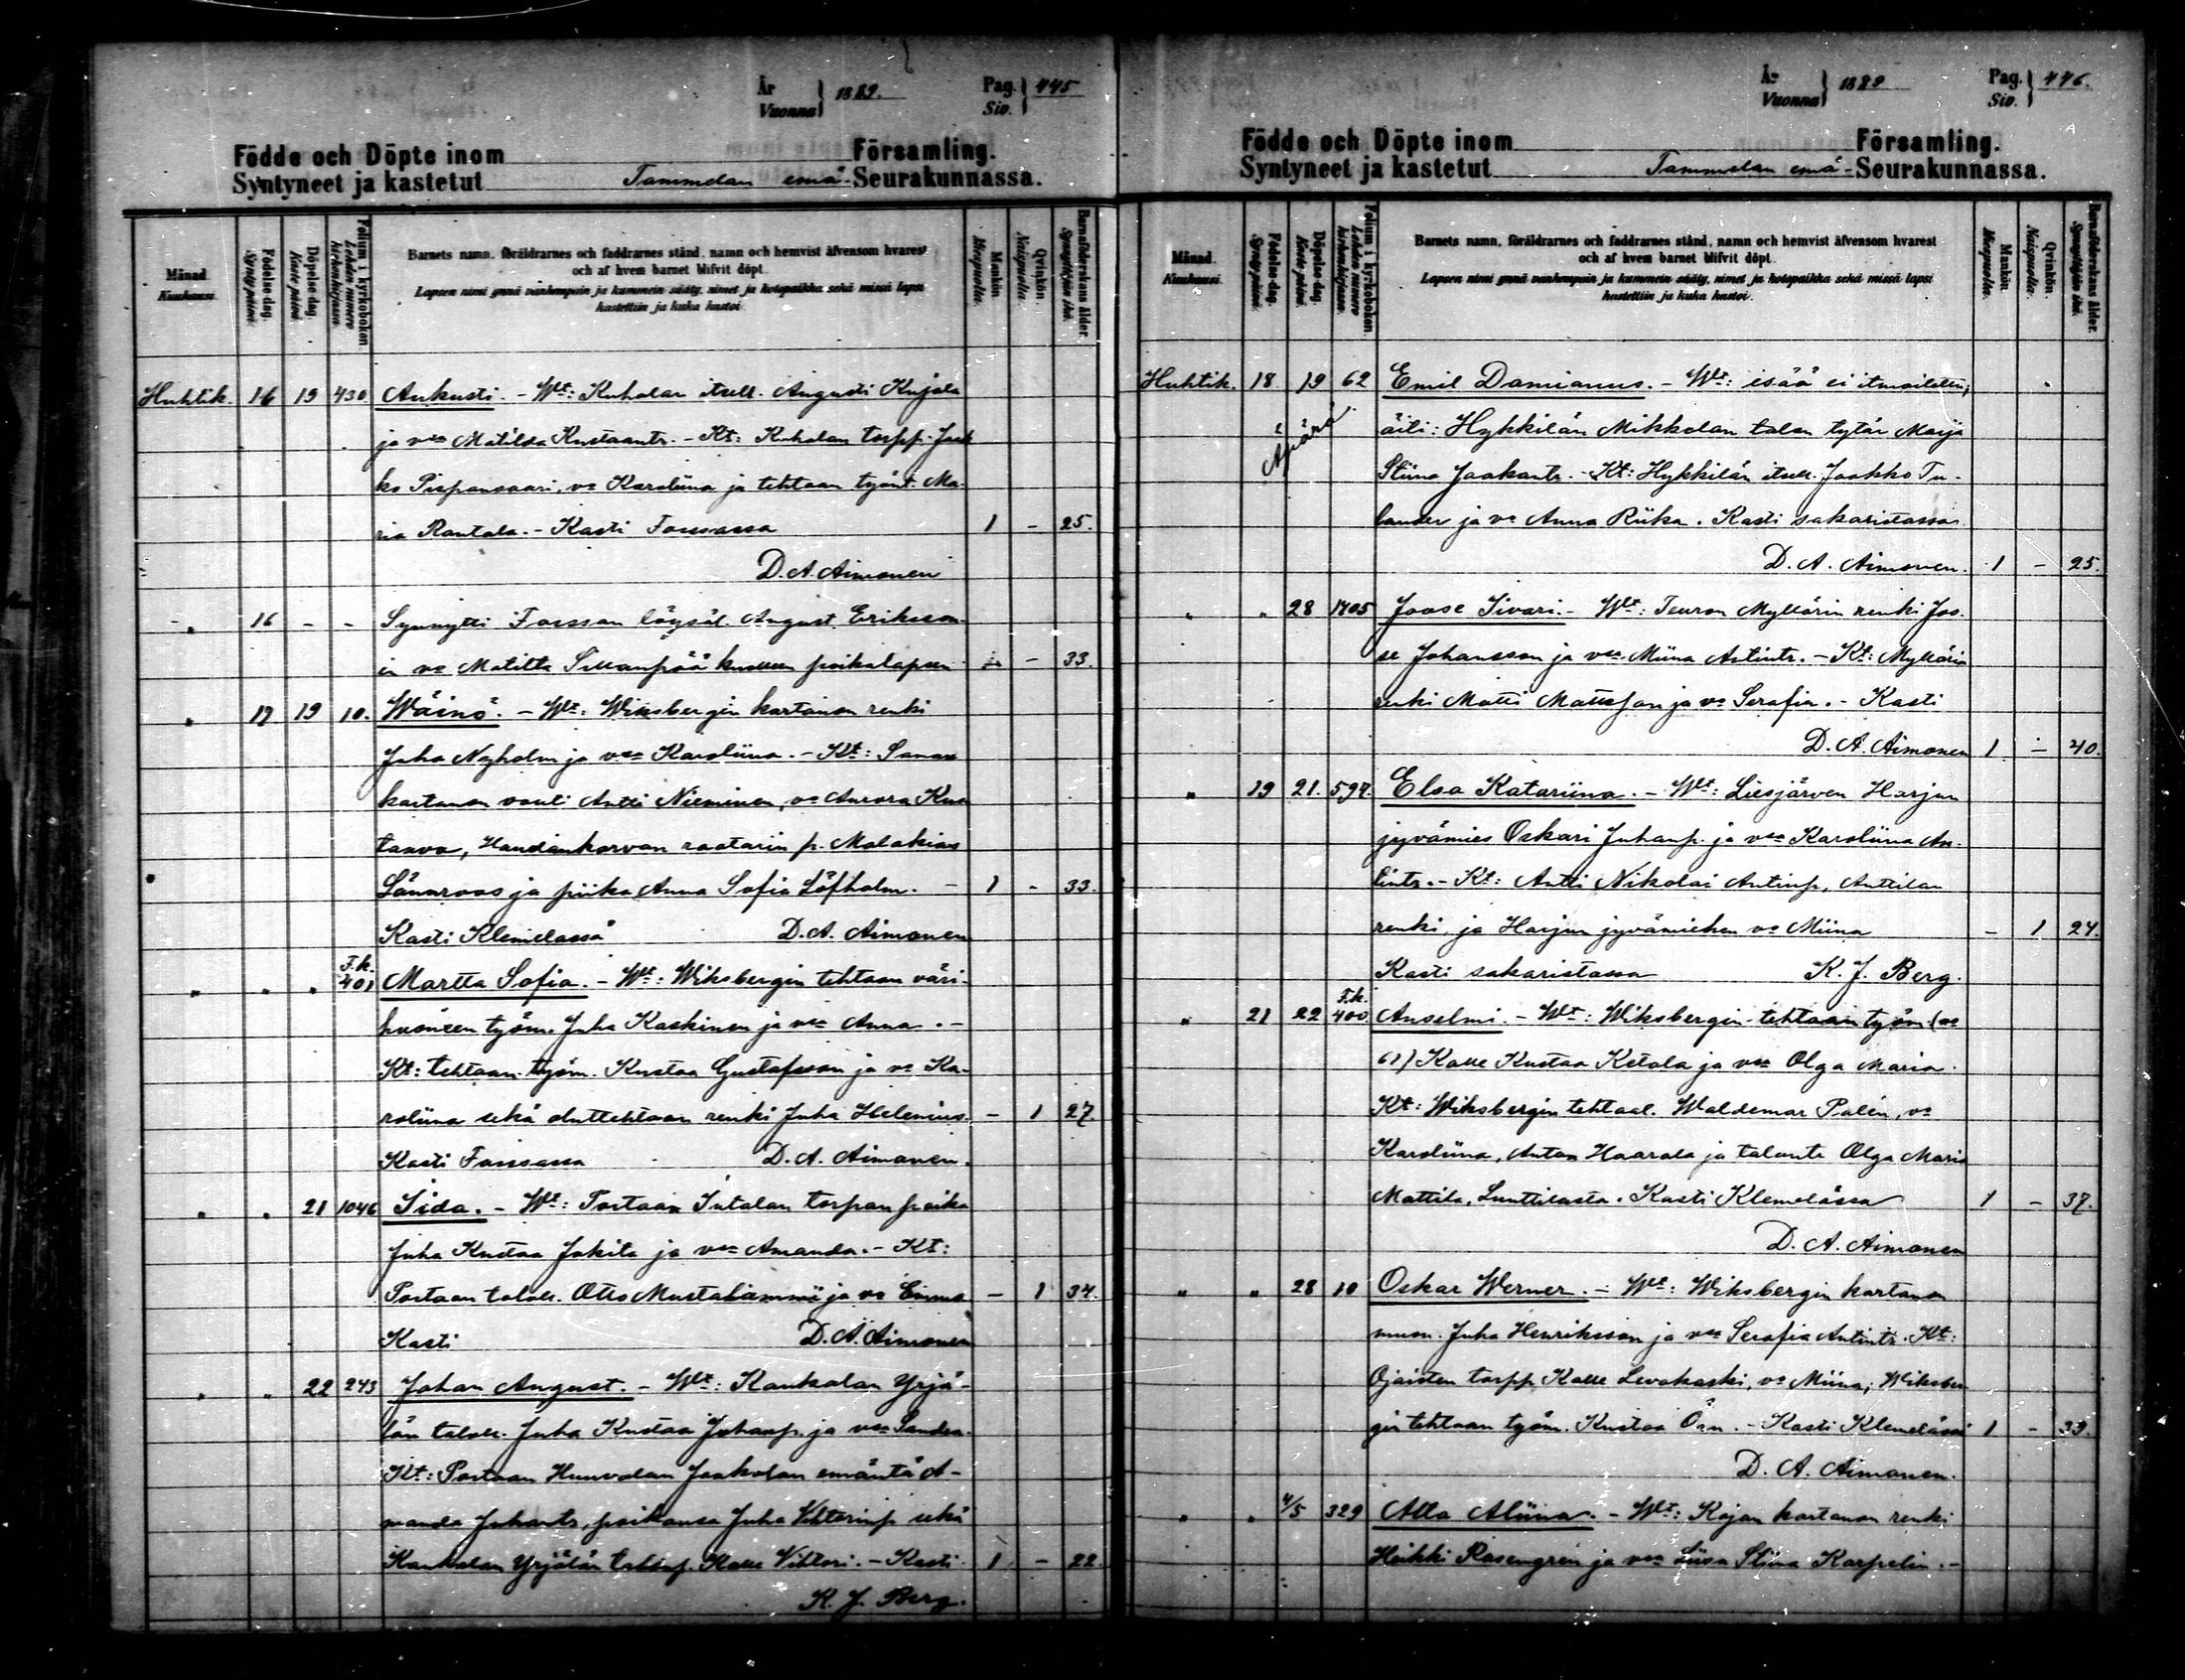 År
Vuonna } 1889.
Pag.
Siv. } 445
Födde och Döpte inom Församling.
Syntyneet ja kastetut Tammelan emä- Seurakunnassa.
Månad. Kuukausi.
Födelse-dag. Synty-päivä.
Döpelse-dag. Kaste-päivä.
Folium i kyrkoboken. Lehden numero kirkonkirjassa.
Barnets namn, föräldrarnes och faddrarnes stånd, namn och hemvist äfvensom hvarest
och af hvem barnet blifvit döpt.
Lapsen nimi ynnä vanhempain ja kummein sääty, nimet ja kotopaikka sekä missä lapsi
kastettiin ja kuka kastoi.
Mankön. Miespuolia.
Qvinkön. Naispuolia.
Barnaföderskans ålder. Synnyttäjän ikä.
Huhtik. 16 19 430 Aukusti. - Wt: Kuhalan itsell. Augusti Kujala
ja vmo Matilda Kustaantr. - Kt: Kuhalan torpp. Jaak
ko Pispansaari, vo Karoliina ja tehtaan työnt. Ma-
ria Rantala. - Kasti Forssassa 1 - 25.
D. A. Aimonen
" 16 - - Synnytti Forssan löysäl. August Eriksson
in vo Matilta Sillanpää kuolleen poikalapsen - 33.
" 17 19 10. Wäinö. - Wt: Wiksbergin kartanon renki
Juha Nyholm ja vmo Karoliina. - Kt: Saman
kartanon vouti Antti Nieminen, vo Aurora Kus
taava, Haudankorvan raatarin p. Malakias
Lännroos ja piika Anna Sofia Löfholm. - 1 - 33.
Kasti Klemelässä D. A. Aimonen
" " " T.k. 401 Martta Sofia. - Wt: Wiksbergin tehtaan väri-
huoneen työm. Juha Kaskinen ja vmo Anna. -
Kt: tehtaan työm. Kustaa Gustafsson ja vo Ka-
roliina sekä oluttehtaan renki Juha Helenius. - 1 27.
Kasti Forssassa D. A. Aimonen.
" " 21 1046 Iida. - Wt: Portaan Intalan torpan poika
Juha Kustaa Jokila ja vmo Amanda. - Kt:
Portaan taloll. Otto Mustalammi ja vo Emma - 1 34.
Kasti D. A. Aimonen
" " 22 243 Johan August. - Wt: Kaukolan Yrjö-
län taloll. Juha Kustaa Juhanp. ja vmo Sandra.
Kt: Portaan Hunvolan Jaakolan emäntä A-
manda Juhantr, poikansa Juha Vihtorinp. sekä
Kaukolan Yrjölän Kalle Vihtori. - Kasti 1 - 22.
K. J. Berg.
År
Vuonna } 1889
Pag.
Siv. } 446.
Födde och Döpte inom Församling.
Syntyneet ja kastetut Tammelan emä- Seurakunnassa.
Månad. Kuukausi.
Födelse-dag. Synty-päivä.
Döpelse-dag. Kaste-päivä.
Folium i kyrkoboken. Lehden numero kirkonkirjassa.
Barnets namn, föräldrarnes och faddrarnes stånd, namn och hemvist äfvensom hvarest
och af hvem barnet blifvit döpt.
Lapsen nimi ynnä vanhempain ja kummein sääty, nimet ja kotopaikka sekä missä lapsi
kastettiin ja kuka kastoi.
Mankön. Miespuolia.
Qvinkön. Naispuolia.
Barnaföderskans ålder. Synnyttäjän ikä.
Huhtik. 18. 19 62 Emil Damianus. - Wt: isää ei ilmoitettu;
Äpärä äiti: Hykkilän Mikkolan talon tytär Maija
Stiina Jaakontr. - Kt: Hykkilän itsell. Jaakko Tu-
lander ja vo Anna Riika. Kasti sakaristassa
D. A. Aimonen. 1 - 25.
" " 28 1705 Joose Iivari. - Wt: Teuron Myllärin renki Joo-
se Johansson ja vmo Miina Antintr. - Kt: Myllärin
renki Matti Mattsson ja vo Serafia. - Kasti
D. A. Aimonen 1 - 40.
" 19 21. 597. Elsa Katariina. - Wt: Liesjärven Harjun
jyvämies Oskari Juhanp. ja vmo Karoliina An-
tintr. - Kt: Antti Nikolai Antinp, Anttilan
renki, ja Harjun jyvämiehen vo Miina - 1 24.
Kasti sakaristassa K. J. Berg.
" 21 22 T.k. 400 Anselmi. - Wt: Wiksbergin tehtaan työm
61) Kalle Kustaa Ketola ja vmo Olga Maria.
Kt: Wiksbergin tehtaal. Waldemar Palén, vo
Karoliina, Anton Haarala ja talontr Olga Maria
Mattila, Lunttilasta. Kasti Klemelässä 1 - 37.
D. A. Aimonen
" " 28 10 Oskar Werner. - Wt: Wiksbergin kartanon
muon. Juha Henriksson ja vmo Serafia Antintr. Kt:
Ojaisten torpp. Kalle Levokaski, vo Miina; Wiksber
gin tehtaan työm. Kustaa - Kasti Klemelässä 1 - 33.
D. A. Aimonen.
" " 4/5 329 Alla Aliina. - Wt: Kojan kartanon renki
Heikki Rosengren ja vmo Liisa Stina Karpelin. -